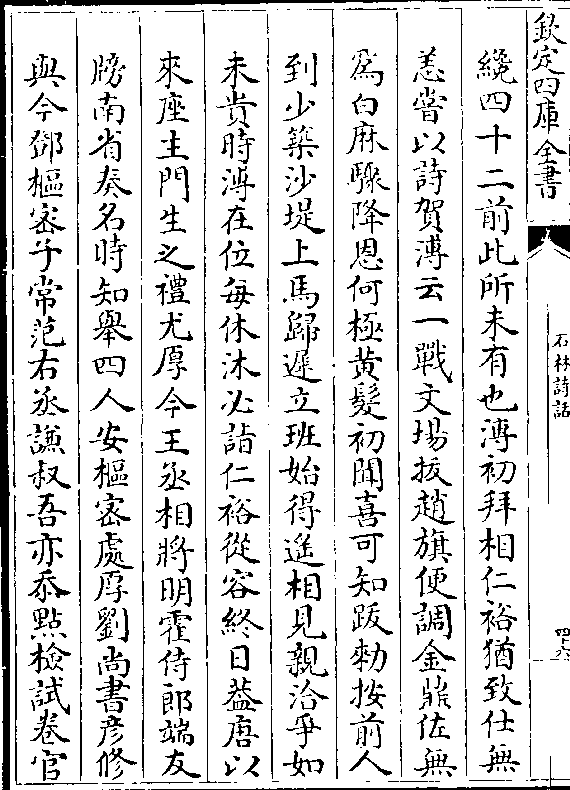 欽定四庫全書
纔四十二前此所未有也溥初拜相仁裕猶致仕無
恙嘗以詩賀溥云一戰文場拔趙旗便調金鼎佐無
為白麻驟降恩何極黄髮初聞喜可知跋勑按前人
到少築沙堤上馬歸遲立班始得進相見親洽爭如
未貴時溥在位每休沐必詣仁裕從容終日葢唐以
來座主門生之禮尤厚今王丞相將明霍侍郎端友
牓南省奏名時知舉四人安樞密處厚劉尚書彦修
與今鄧樞密子常范右丞謙叔吾亦忝點檢試卷官
石林詩話